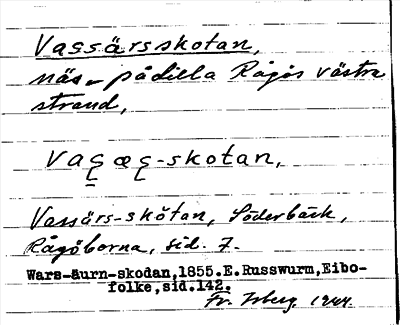 Vassärsskotan,
näs på lilla Rågös västra
strand,
vaʂæʂ-skotan,
Vassärs-skötan, Söderbäck,
Rågöborna, sid. 7.
Wars-äurn-skodan,1855.E.Russwurm,Eibo-
folke,sid.142.
Fr. Isberg 1944.